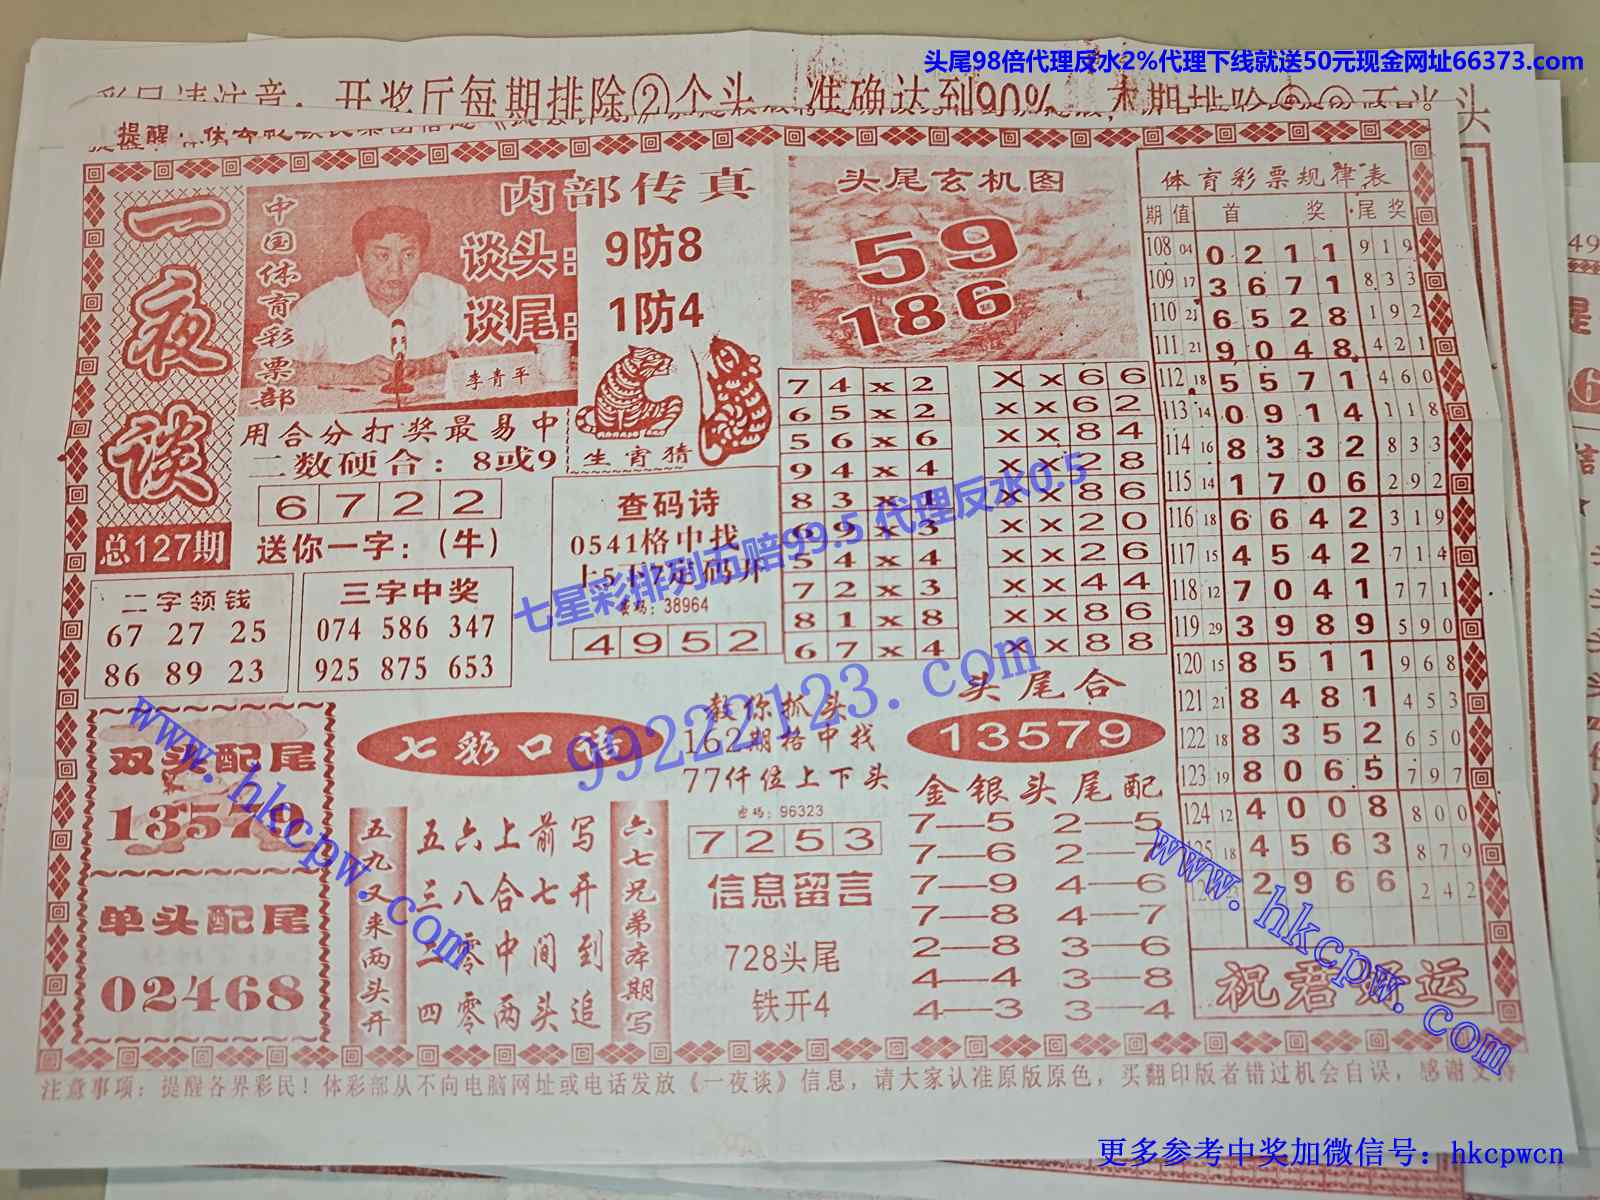 头尾98倍代理反水2%代理下线就送50元现金网址66373.com
开奖厅每期排除②个头 准确达到90%
一夜谈
总127期
中国体育彩票部
内部传真
谈头：9防8
谈尾：1防4
李青平
用合分打奖最易中
二数硬合：8或9
6 7 2 2
送你一字：（牛）
生肖猜
头尾玄机图
59
186
二字领钱
67 27 25
86 89 23
三字中奖
074 586 347
925 875 653
查码诗
0541格中找
上5下7定码开
密码：38964
4 9 5 2
7 4 x 2
6 5 x 2
5 6 x 6
9 4 x 4
8 3 x 1
6 9 x 3
5 4 x 4
7 2 x 3
8 1 x 8
6 7 x 4
x x 6 6
x x 6 2
x x 8 4
x x 2 8
x x 8 6
x x 2 0
x x 2 6
x x 4 4
x x 8 6
x x 8 8
体育彩票规律表
期 值 首 奖 尾奖
108 04 0 2 1 1 9 1 9
109 17 3 6 7 1 8 3 3
110 21 6 5 2 8 1 9 2
111 21 9 0 4 8 4 2 1
112 18 5 5 7 1 4 6 0
113 14 0 9 1 4 1 1 8
114 16 8 3 3 2 8 3 3
115 14 1 7 0 6 2 9 2
116 18 6 6 4 2 3 1 9
117 15 4 5 4 2 7 1 4
118 12 7 0 4 1 7 7 1
119 29 3 9 8 9 5 9 0
120 15 8 5 1 1 9 6 8
121 21 8 4 8 1 4 5 3
122 18 8 3 5 2 6 5 0
123 19 8 0 6 5 7 9 7
124 12 4 0 0 8 8 0 0
125 18 4 5 6 3 8 7 9
2 9 6 6 2 4 2
祝君好运
双头配尾
13579
单头配尾
02468
七彩口语
五九又来两头开
五六上前写
三八合七开
二零中间到
四零两头追
六七兄弟本期写
教你抓头
162期格中找
77仟位上下头
密码：96323
7 2 5 3
信息留言
728头尾
铁开4
头尾合
13579
金银头尾配
7—5 2—5
7—6 2—7
7—9 4—6
7—8 4—7
2—8 3—6
4—4 3—8
4—3 3—4
注意事项：提醒各界彩民！体彩部从不向电脑网址或电话发放《一夜谈》信息，请大家认准原版原色，买翻印版者错过机会自误，感谢支持
七星彩排列五赔99.5 代理反水0.5
99222123.com
www.hkcpw.com
www.hkcpw.com
更多参考中奖加微信号：hkcpwcn